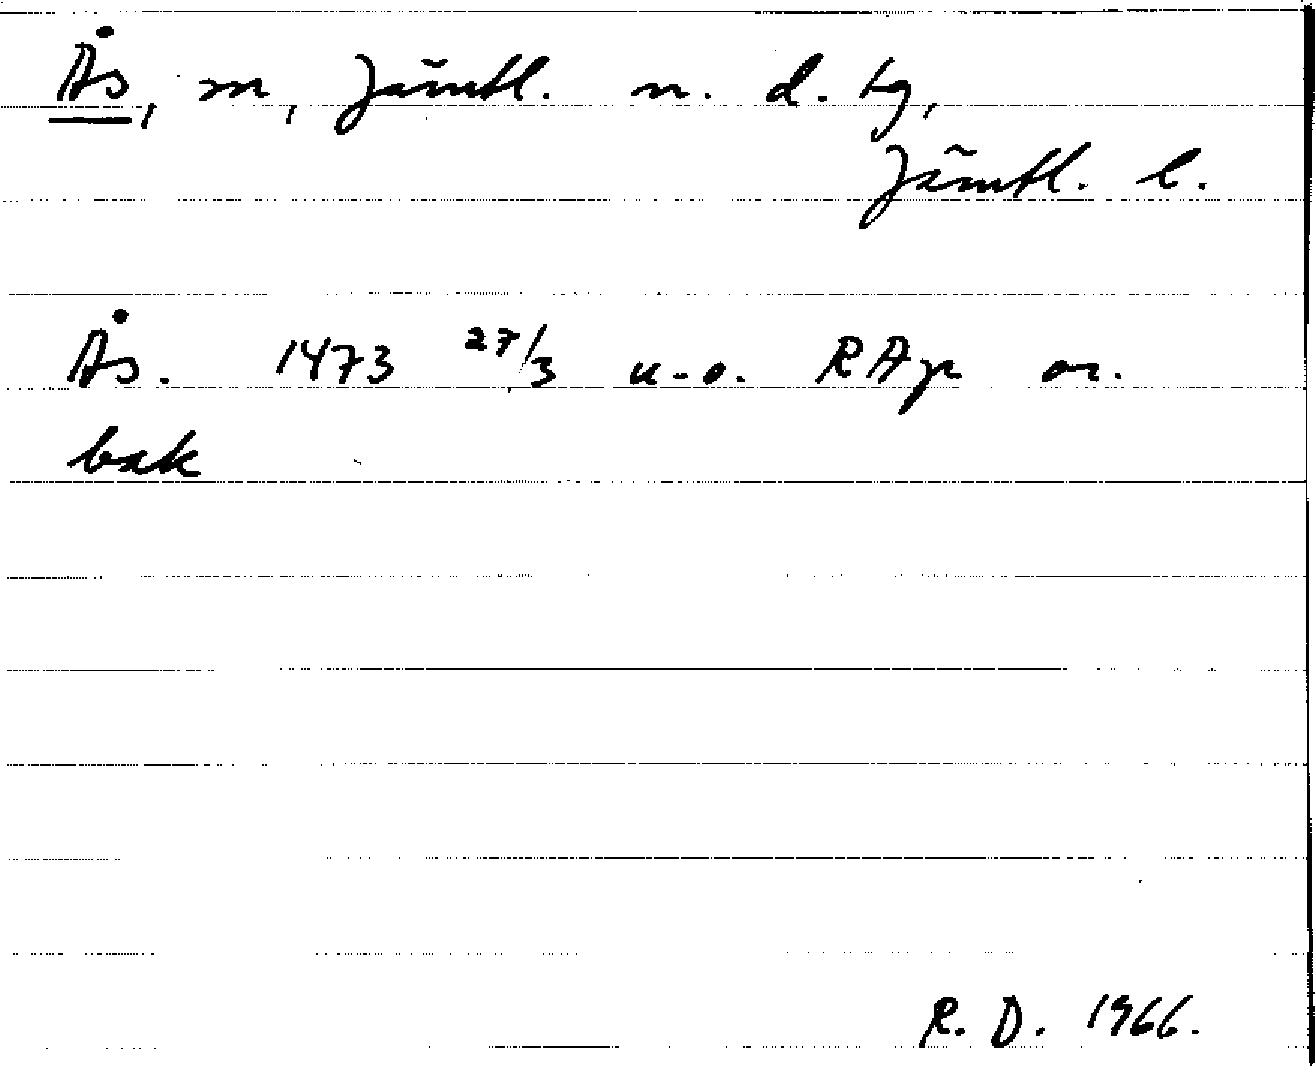 Ås, sn, Jämtl. n. d. tg,
Jämtl. l.
Ås. 1473 27/3 u.o. RAp or.
bak
R. D. 1966.